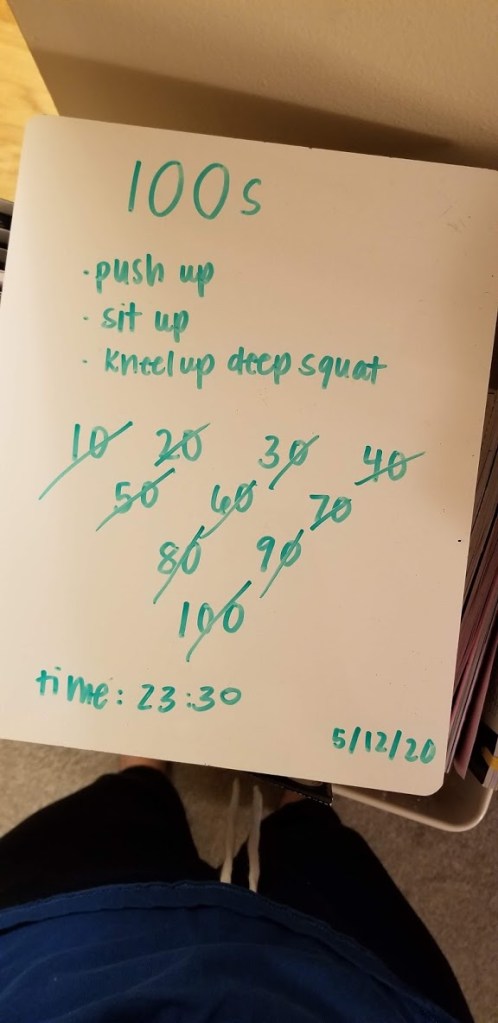 100s
· push up
· sit up
· kneel up deep squat
10 20 30 40
50 60 70
80 90
100
time: 23:30
5/12/20